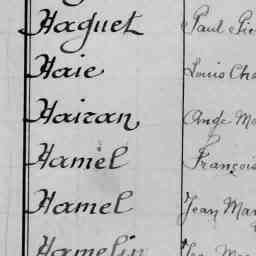 Haguet Paul Pie
Haie Louis Cha
Hairan Ange Ma
Hamel François
Hamel Jean Mar
Hamelin